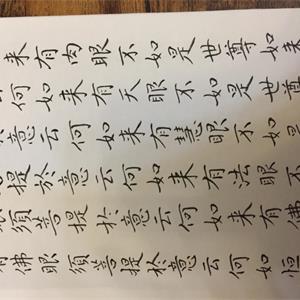 来有肉眼不如是世尊如来
何如来有天眼不如是世尊
意云何如来有慧眼不如是
提於意云何如来有法眼不
須菩提於意云何如来有佛
有佛眼須菩提於意云何如恒